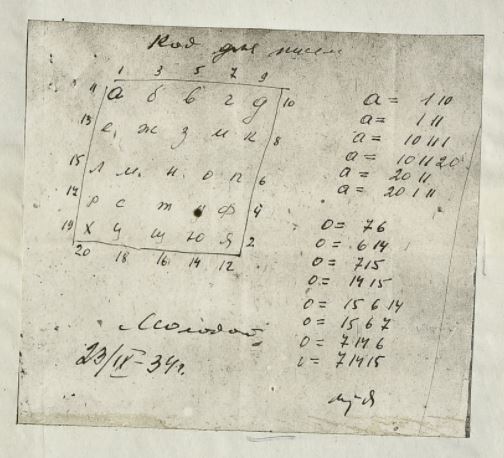 Код для писем
1 3 5 7 9
11 а б в г д 10
13 е ж з и к 8
15 л м н о п 6
17 р с т у ф 4
19 х ц щ ю я 2
20 18 16 14 12
а = 1 10
а = 1 11
а = 10 11 1
а = 10 11 20
а = 20 11
а = 20 1 11
о = 7 6
о = 6 14
о = 7 15
о = 14 15
о = 15 6 14
о = 15 6 7
о = 7 14 6
о = 7 14 15
Молодой
23/IX-34г.